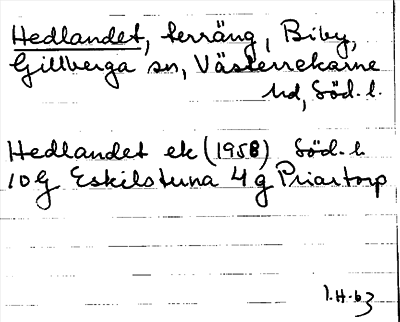 Hedlandet, terräng, Biby,
Gillberga sn, Västerrekarne
hd, Söd. l.
Hedlandet ek (1958) Söd. l.
10 G Eskilstuna 4 g Priartorp